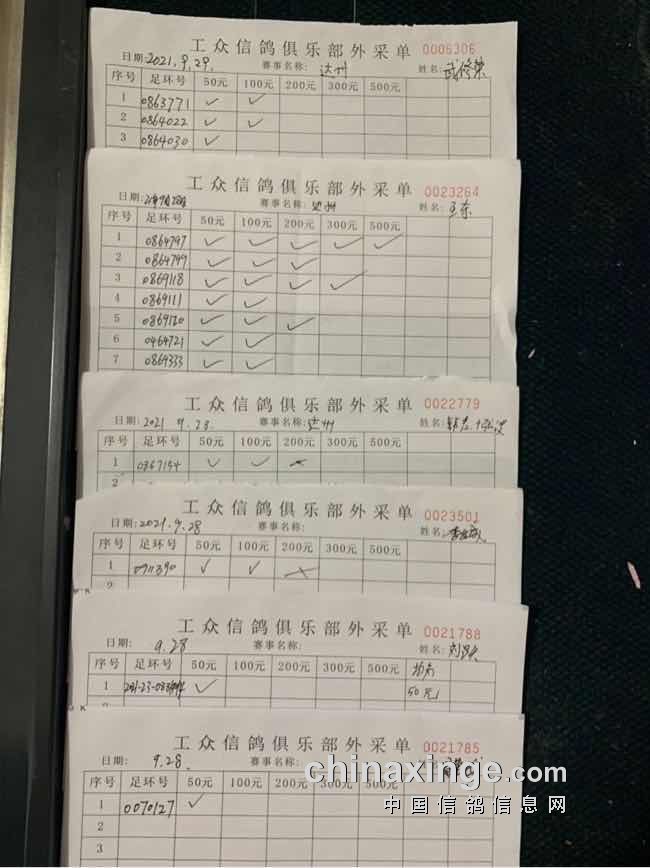 工众信鸽俱乐部外采单 0006306
日期:2021.9.29. 赛事名称: 达州 姓名:
序号 足环号 50元 100元 200元 300元 500元
1 0863771 ✓ ✓
2 0864022 ✓ ✓
3 0864030 ✓
工众信鸽俱乐部外采单 0023264
日期: 赛事名称: 达州 姓名: 王东
序号 足环号 50元 100元 200元 300元 500元
1 0864797 ✓ ✓ ✓ ✓ ✓
2 0864799 ✓ ✓ ✓
3 0869118 ✓ ✓ ✓ ✓
4 0869111 ✓ ✓
5 0869120 ✓ ✓ ✓
6 0464721 ✓ ✓
7 0864333 ✓ ✓
工众信鸽俱乐部外采单 0022779
日期: 2021 9.23. 赛事名称: 达州 姓名:
序号 足环号 50元 100元 200元 300元 500元
1 0867154 ✓ ✓
2
工众信鸽俱乐部外采单 0023501
日期: 2021.9.28 赛事名称: 姓名:
序号 足环号 50元 100元 200元 300元 500元
1 0711390 ✓ ✓
工众信鸽俱乐部外采单 0021788
日期: 9.28 赛事名称: 姓名:
序号 足环号 50元 100元 200元 300元 500元
1 ✓ 50元
工众信鸽俱乐部外采单 0021785
日期: 9.28. 赛事名称:
序号 足环号 50元 100元 200元 300元 500元
1 0070127 ✓
2
3
chinaxinge.com
中国信鸽信息网